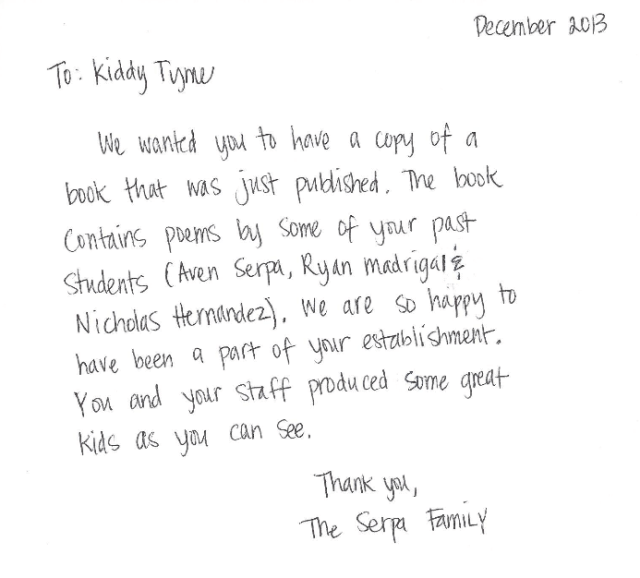 December 2013
To: Kiddy Tyme
We wanted you to have a copy of a
book that was just published. The book
contains poems by some of your past
students (Aven Serpa, Ryan Madrigal &
Nicholas Hernandez). We are so happy to
have been a part of your establishment.
You and your staff produced some great
kids as you can see.
Thank you,
The Serpa Family